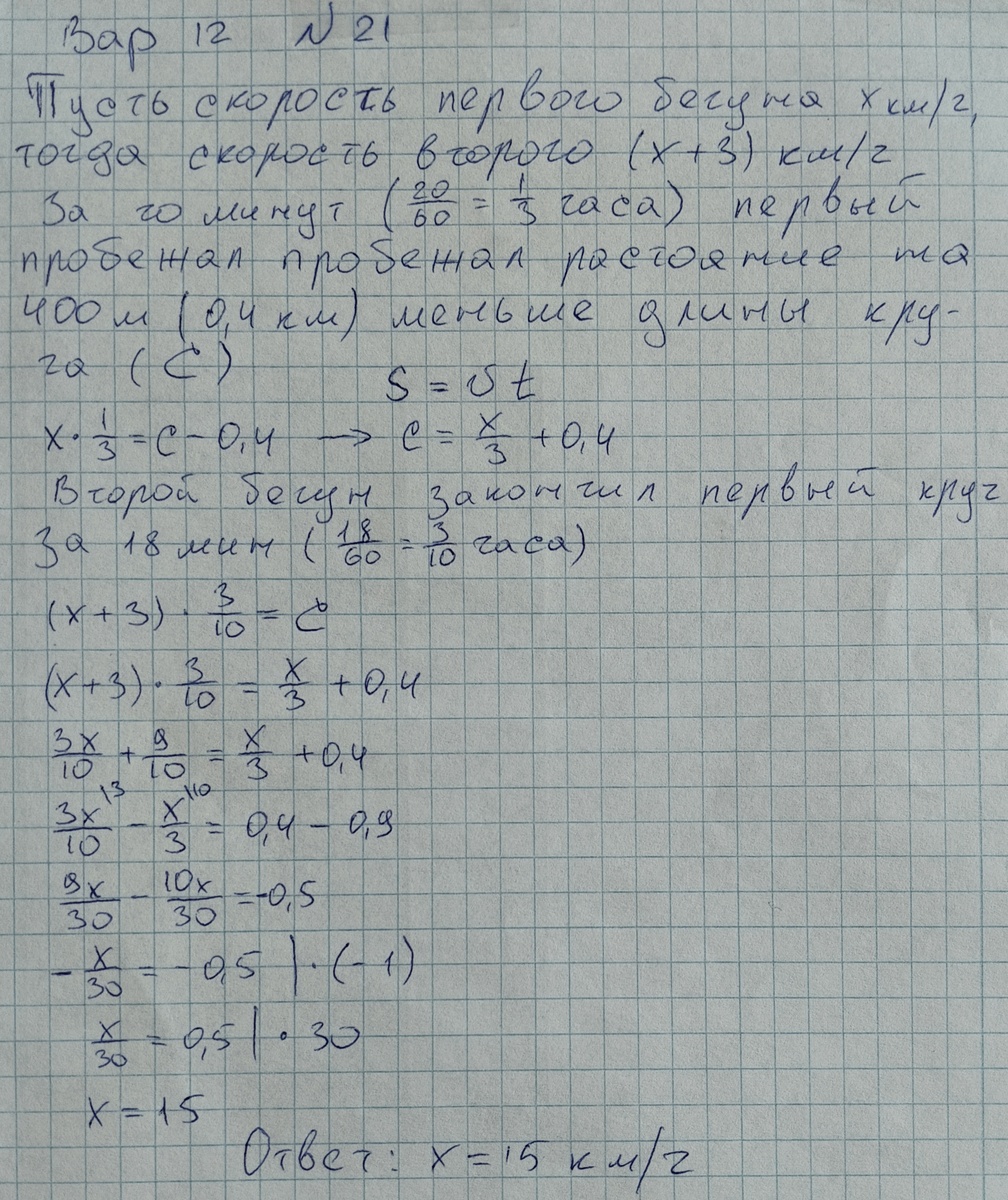 Вар 12 № 21
Пусть скорость первого бегуна x км/ч,
тогда скорость второго (x+3) км/ч
За 20 минут (20/60 = 1/3 часа) первый
пробежал пробежал растояние на
400 м (0,4 км) меньше длины кру-
га (С)
S = υt
x · 1/3 = С - 0,4 → С = x/3 + 0,4
Второй бегун закончил первый круг
за 18 мин (18/60 = 3/10 часа)
(x+3) · 3/10 = С
(x+3) · 3/10 = x/3 + 0,4
3x/10 + 9/10 = x/3 + 0,4
3x/10 \3 - x/3 \10 = 0,4 - 0,9
9x/30 - 10x/30 = -0,5
- x/30 = - 0,5 | · (-1)
x/30 = 0,5 | · 30
x = 15
Ответ: x = 15 км/ч